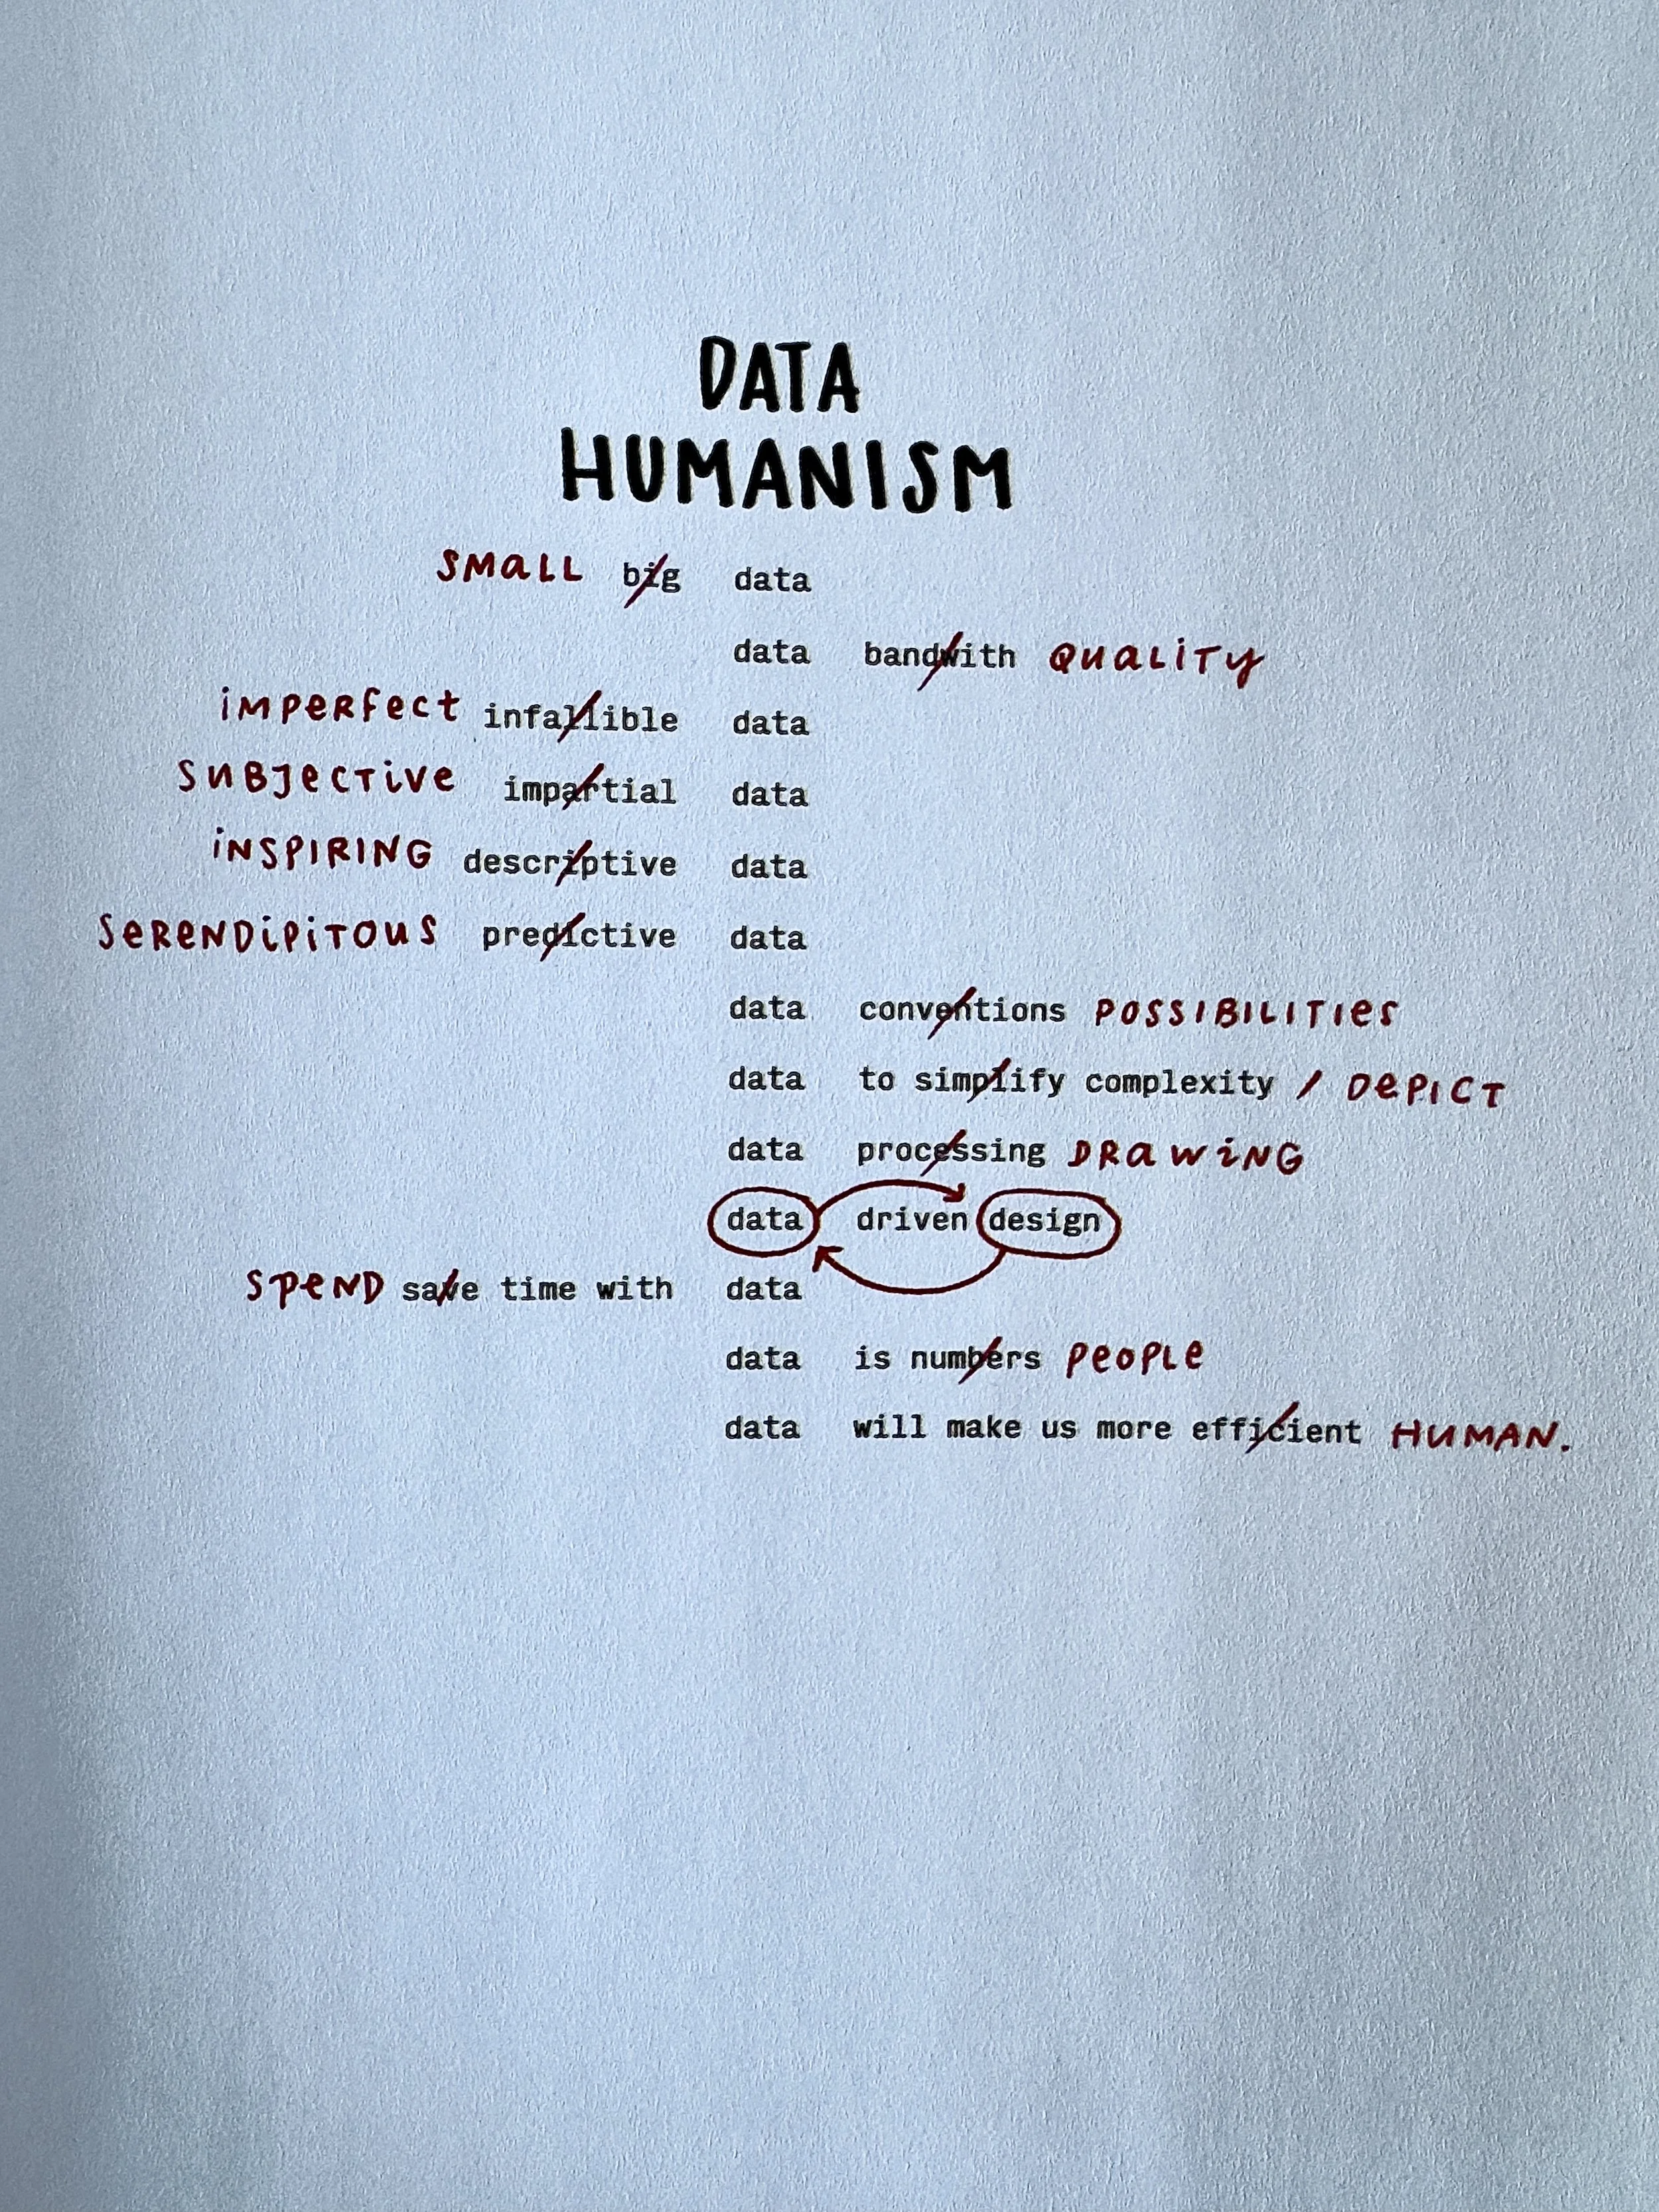 DATA
HUMANISM
SMALL big data
data bandwith QUALITY
IMPERFECT infallible data
SUBJECTIVE impartial data
INSPIRING descriptive data
SERENDIPITOUS predictive data
data conventions POSSIBILITIES
data to simplify complexity / DEPICT
data processing DRAWING
data driven design
SPEND save time with data
data is numbers PEOPLE
data will make us more efficient HUMAN.